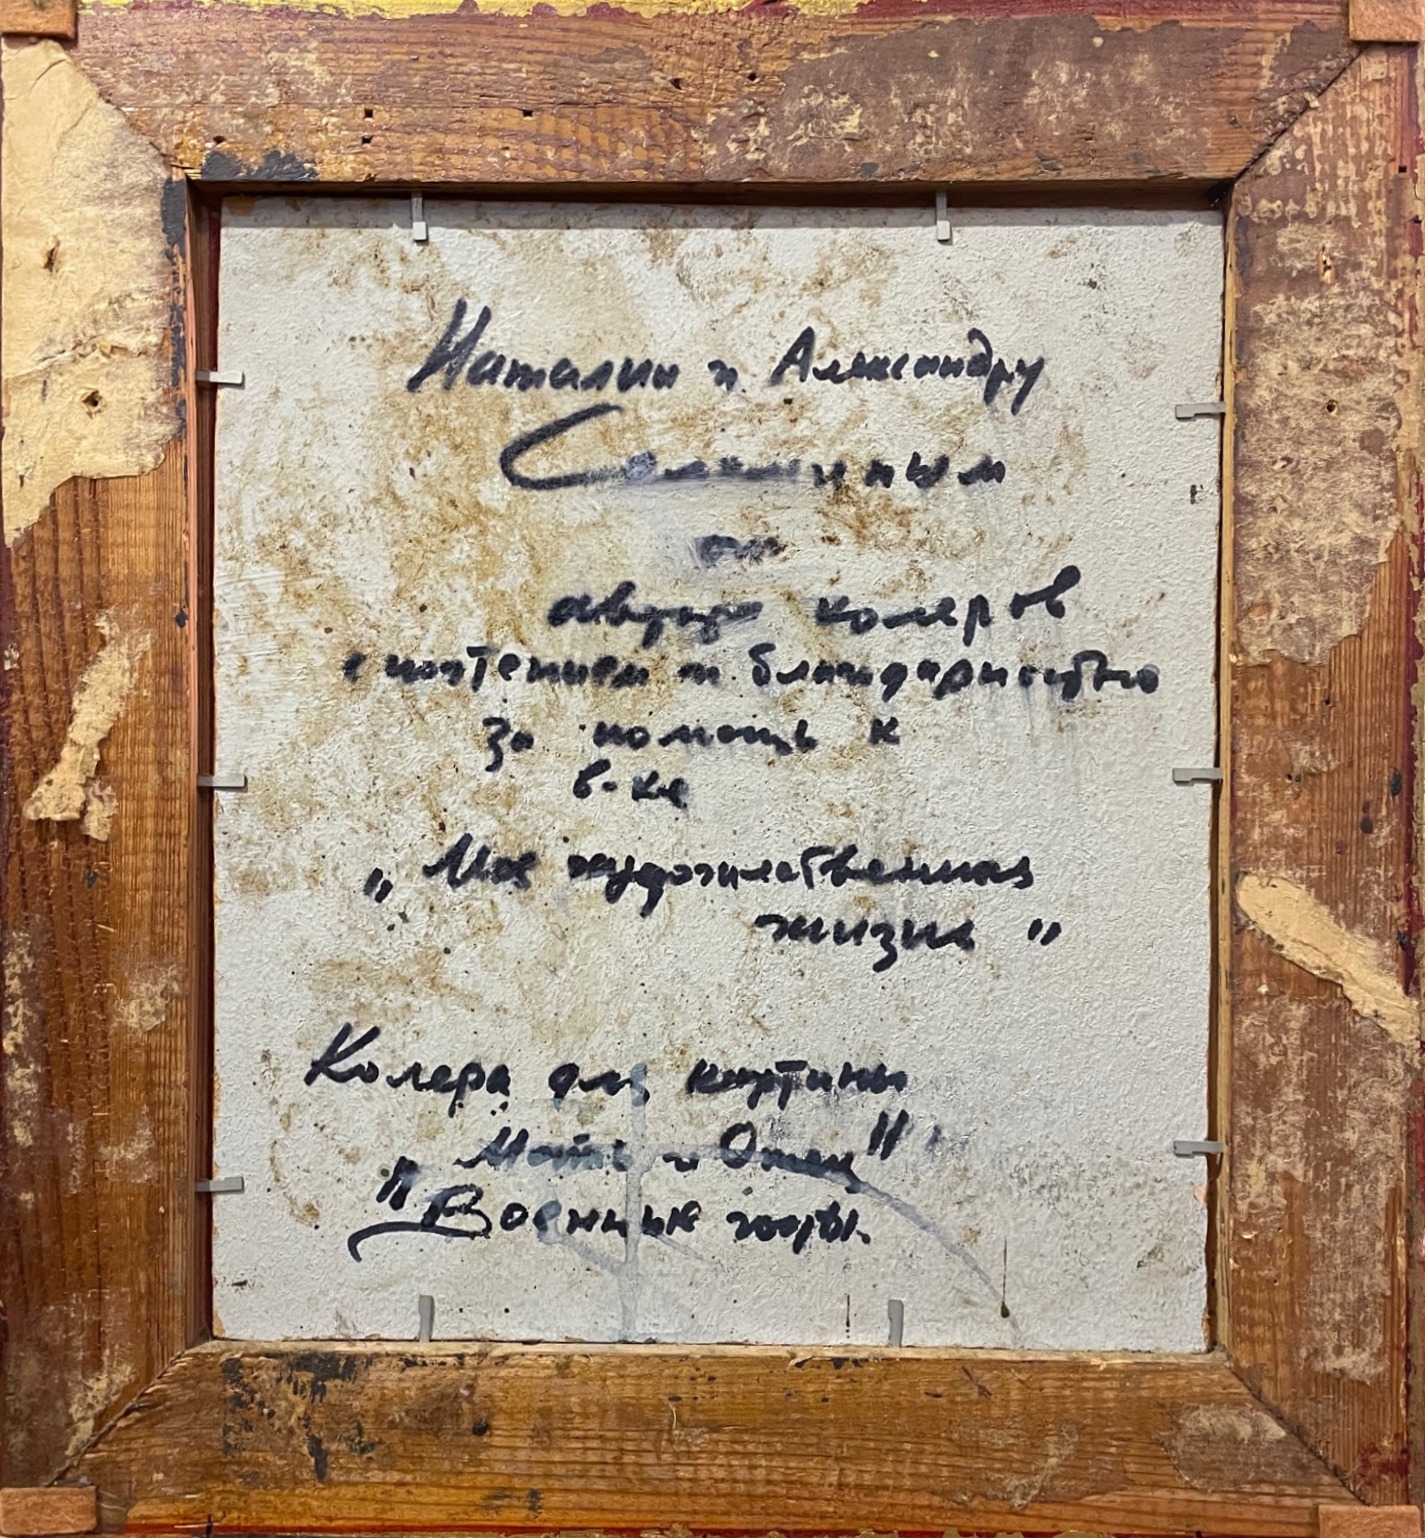 Наталии и Александру
от
автора колеров
с почтением и благодарностью
за помощь к
в-ке
„ Моя художественная
жизнь "
Колера для картины
„ Мать и Отец"
Военные годы.